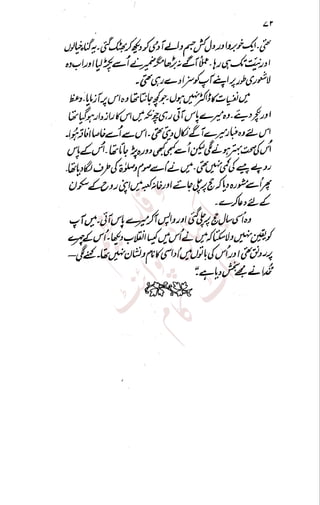 ۷۲
تھی۔ ایک خوبرو اور دلکش جسم والے آدمی کو دیکھ کر بھٹک گئی۔ یہ گناہ خیالوں
اور نیت تک ہی رہا۔ عملاً آگے نہ بڑھا مگر ضمیر نے اُسے پکڑ لیا اور اب وہ
لاشعوری طور پر اپنے آپ کو سزا دے رہی تھی۔
میں نفسیات کا ڈاکٹر نہیں ہوں۔ جو کچھ جانتا تھا وہ اس پر آزمایا۔ وعظ
اور لیکچر دیئے۔ وہ میرے پاس آتی رہی چونکہ میں اس کا رازدار ہو گیا تھا
اس لئے وہ غبار میرے آگے نکال دیتی تھی۔ اس سے اُسے خاصا افاقہ ہُوا۔
اُس کی صحت بہتر ہونے لگی لیکن اُسے کبھی کبھی دورہ پڑ جاتا تھا۔ اُس کے پاس
روپے پیسے کی کمی نہیں تھی۔ میں نے اُسے صوم و صلوٰة کی طرف لگا دیا تھا۔
پھر اُسے مشورہ دیا کہ حج پر چلی جائے اور خانہ کعبہ میں اپنی روح کے سکون
کے لئے دعا کرے۔
وہ اُسی سال حج پر چلی گئی اور واپس آکر میرے پاس آئی۔ میں آپ
کو یقین نہیں دلا سکتا کہ میں نے اُس میں کیسا انقلاب دیکھا۔ اُس کے چہرے
پر رونق تھی اور اُس کی باتوں میں اُداسی کا نام و نشان نہیں تھا۔ کہنے لگی—
”خُدا نے مجھے بخش دیا ہے۔“